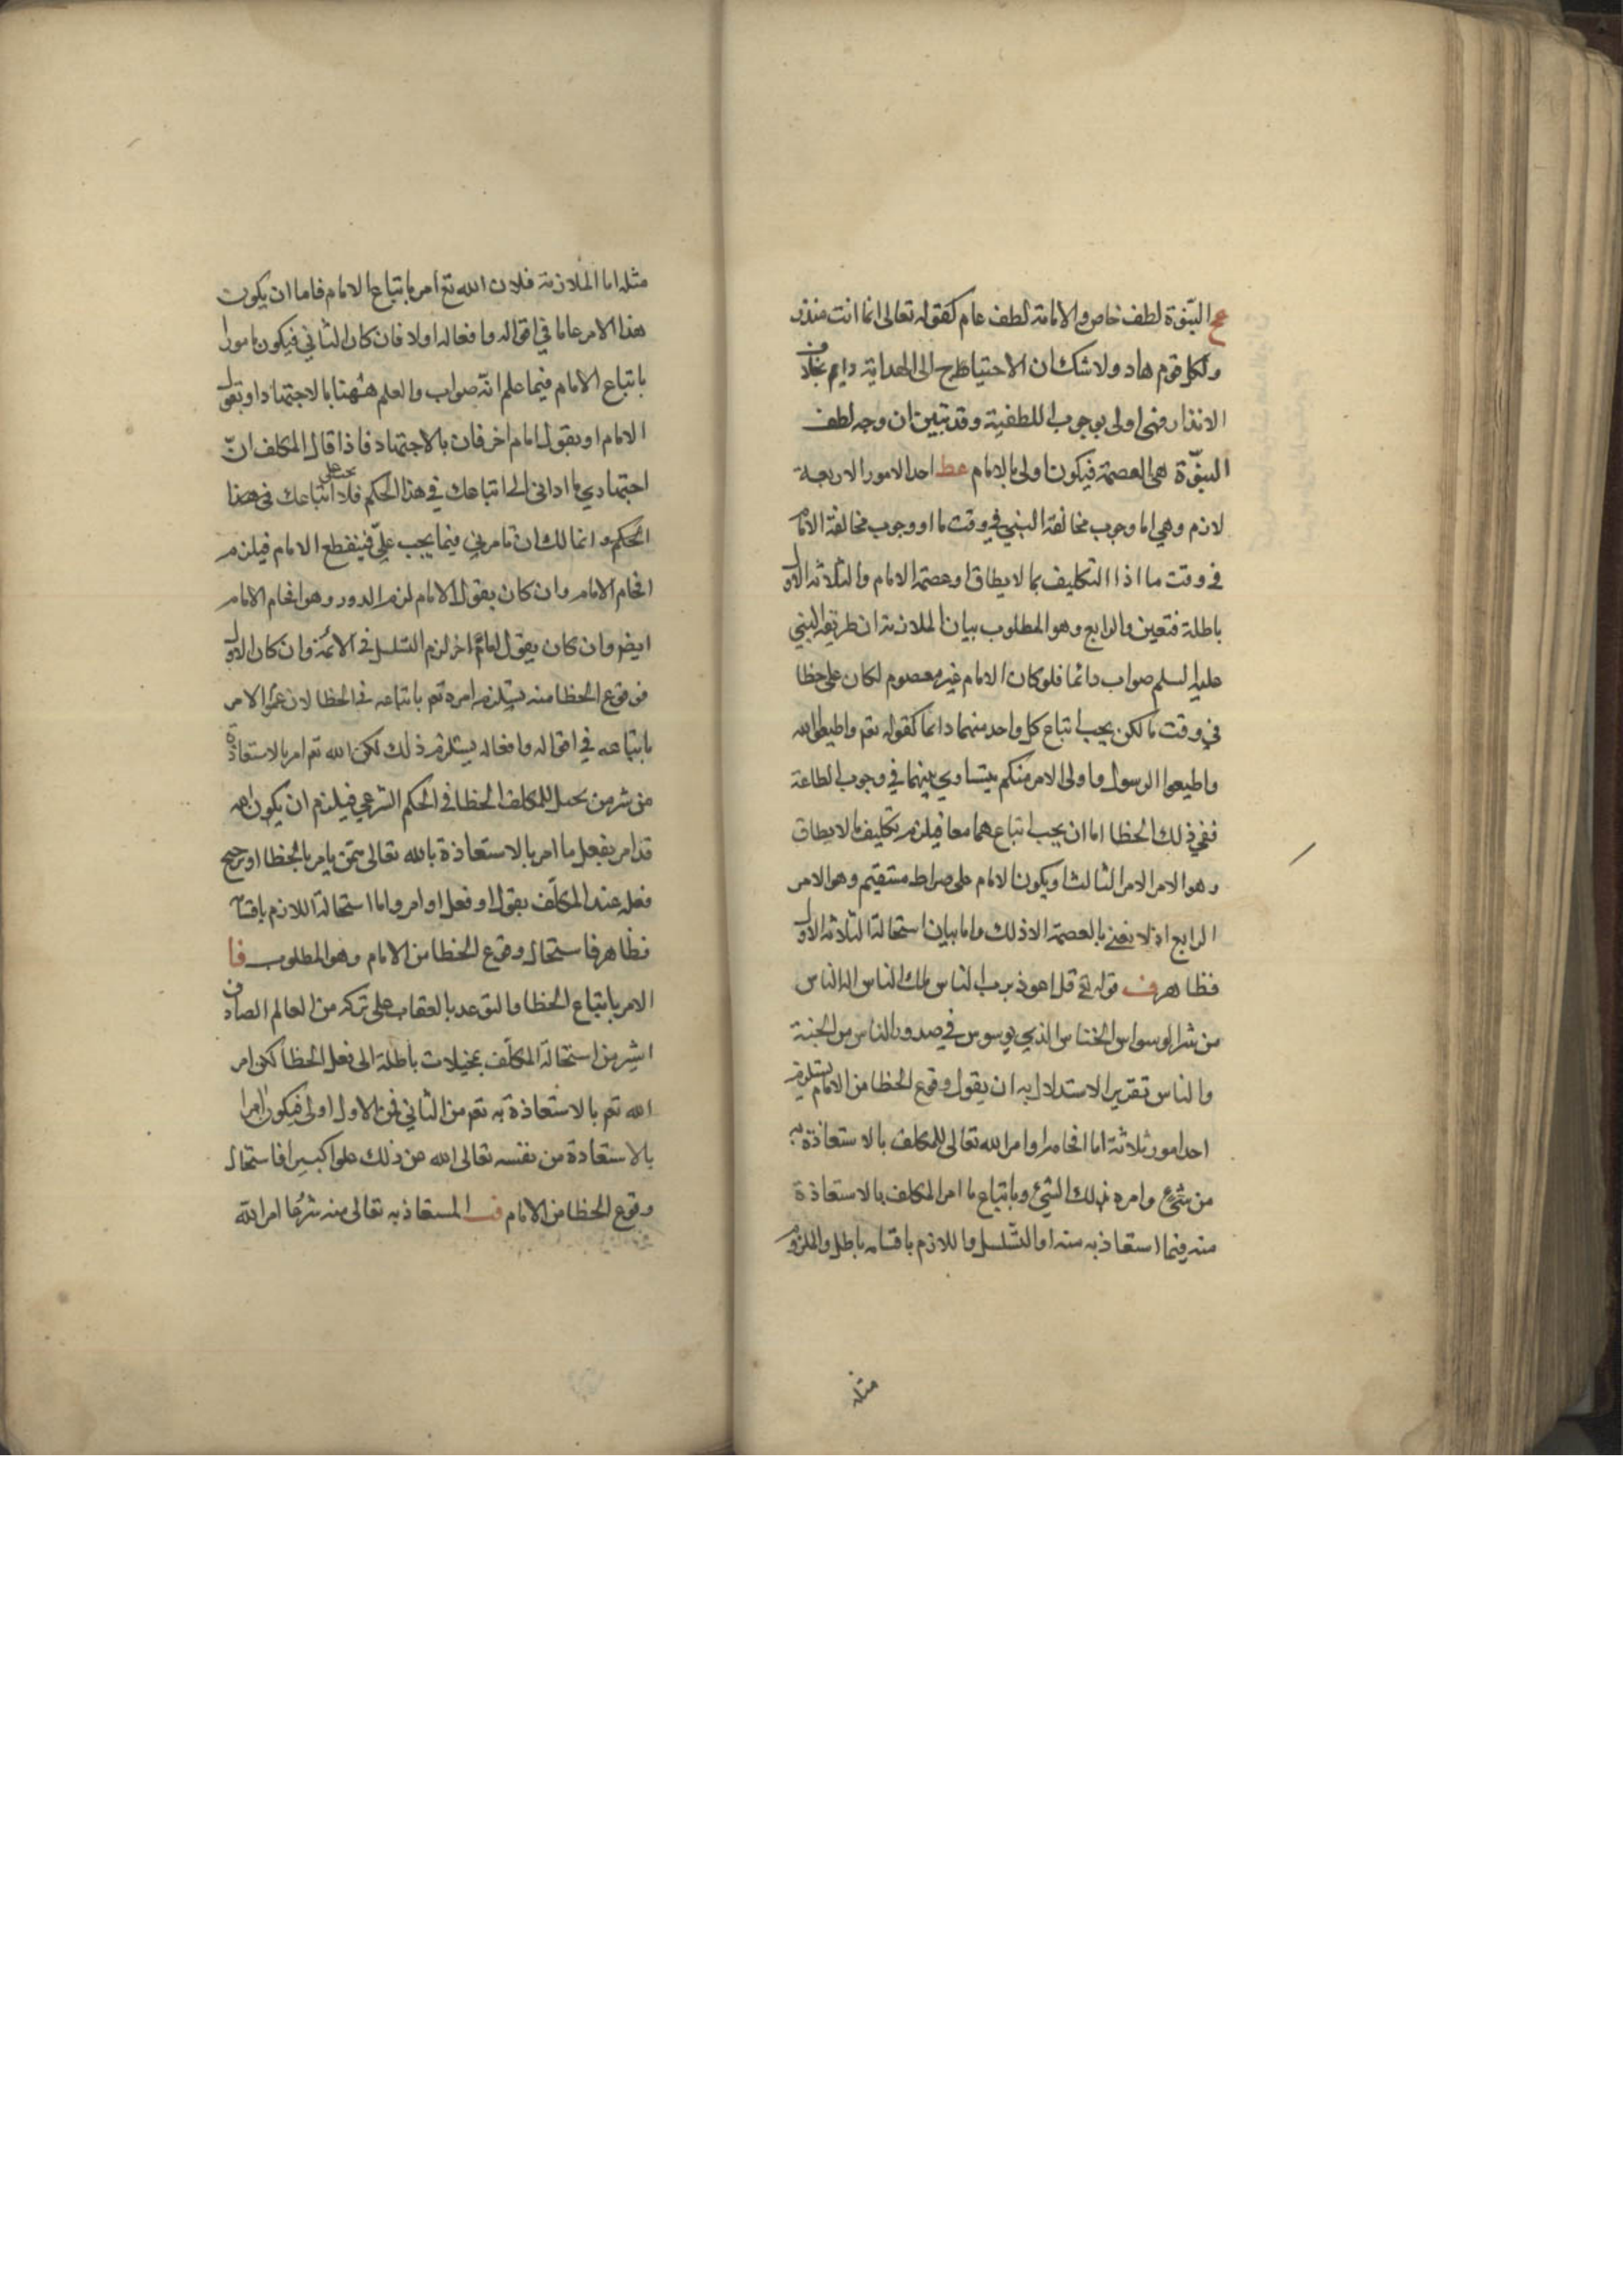 عح النبّوة لطف خاص والامامة لطف عام كقوله تعالى انما انت منذر
ولكل قوم هاد ولا شك ان الاحتياج الى الهداية دايم بخلاف
الانذار فهى اولى بوجوب اللطفية وقد تبين ان وجه لطف
النبّوة هى العصمة فيكون اولى بالامام عط احد الامور الاربعة
لازم وهي اما وجوب مخالفة النبي في وقت ما او وجوب مخالفة الامام
في وقت ما اذا التكليف بما لا يطاق او عصمة الامام والثلاثة الاول
باطلة فتعين الرابع وهو المطلوب بيان الملازمة ان طريقة النبي
عليه السلم صواب دائما فلو كان الامام غير معصوم لكان على خطا
في وقت ما لكن يجب اتباع كل واحد منهما دائما كقوله تعم واطيعوا الله
واطيعوا الرسول واولى الامر منكم يتساوي بينهما في وجوب الطاعة
ففي ذلك الخطا اما ان يجب اتباعهما معا فيلزم تكليف ما لا يطاق
وهو الامر الامر الثالث او يكون الامام على صراط مستقيم وهو الامر
الرابع اذ لا نعني بالعصمة الا ذلك واما بيان استحالة الثلاثة الاول
فظاهر ف قوله تع قل اعوذ برب الناس ملك الناس اله الناس
من شر الوسواس الخناس الذي يوسوس في صدور الناس من الجنة
والناس تقرير الاستدلال به ان يقول وقوع الخطا من الامام يستلزم
احد امور ثلاثة اما افحامه او امر الله تعالى للمكلف بالاستعاذة به
من شئ وامره بذلك الشئ وباتباع ما امر المكلف بالاستعاذة
منه فيما استعاذ به منه او التسلسل واللازم باقسامه باطل والملزوم
مثله
مثله اما الملازمة فلان الله تع امر باتباع الامام فاما ان يكون
هذا الامر عاما في اقواله وافعاله اولا فان كان الثاني فيكون مامورا
باتباع الامام فيما علم انّه صواب والعلم هيهنا بالاجتهاد او بقول
الامام او بقول امام اخر فان بالاجتهاد فاذا قال المكلف انّ
اجتهادي ما ادانى الى اتباعك في هذا الحكم فلا يجب على اتباعك في هذا
الحكم وانما لك ان تامرني فيما يجب علىّ فينقطع الامام فيلزم
افحام الامام وان كان بقول الامام لزم الدور وهو افحام الامام
ايضا وان كان بقول امام اخر لزم التسلسل في الائمة وان كان الاول
فوقوع الخطا منه يستلزم امره تعم باتباعه في الخطا لان عموم الامر
باتباعه في اقواله وافعاله يستلزم ذلك لكن الله تعم امر بالاستعاذة
من شر من يحمل المكلف الخطا في الحكم الشرعي فيلزم ان يكون الله
قد امر بفعل ما امر بالاستعاذة بالله تعالى ممّن يامر بالخطا او يرجح
فعله عند المكلّف بقول او فعل او امر واما استحالة اللازم باقسامه
فظاهر فاستحال وقوع الخطا من الامام وهو المطلوب فا
الامر باتباع الخطا والتوعد بالعقاب على تركه من العالم الصادق
اشر من استحالة المكلّف بتخيلات باطلة الى فعل الخطا لكن امر
الله تعم بالاستعاذة به تعم من الثاني فمن الاول اولى فيكون امرا
بالاستعاذة من نفسه تعالى الله عن ذلك علوا كبيرا فاستحال
وقوع الخطا من الامام فب المستعاذ به تعالى منه شرعا امر الله